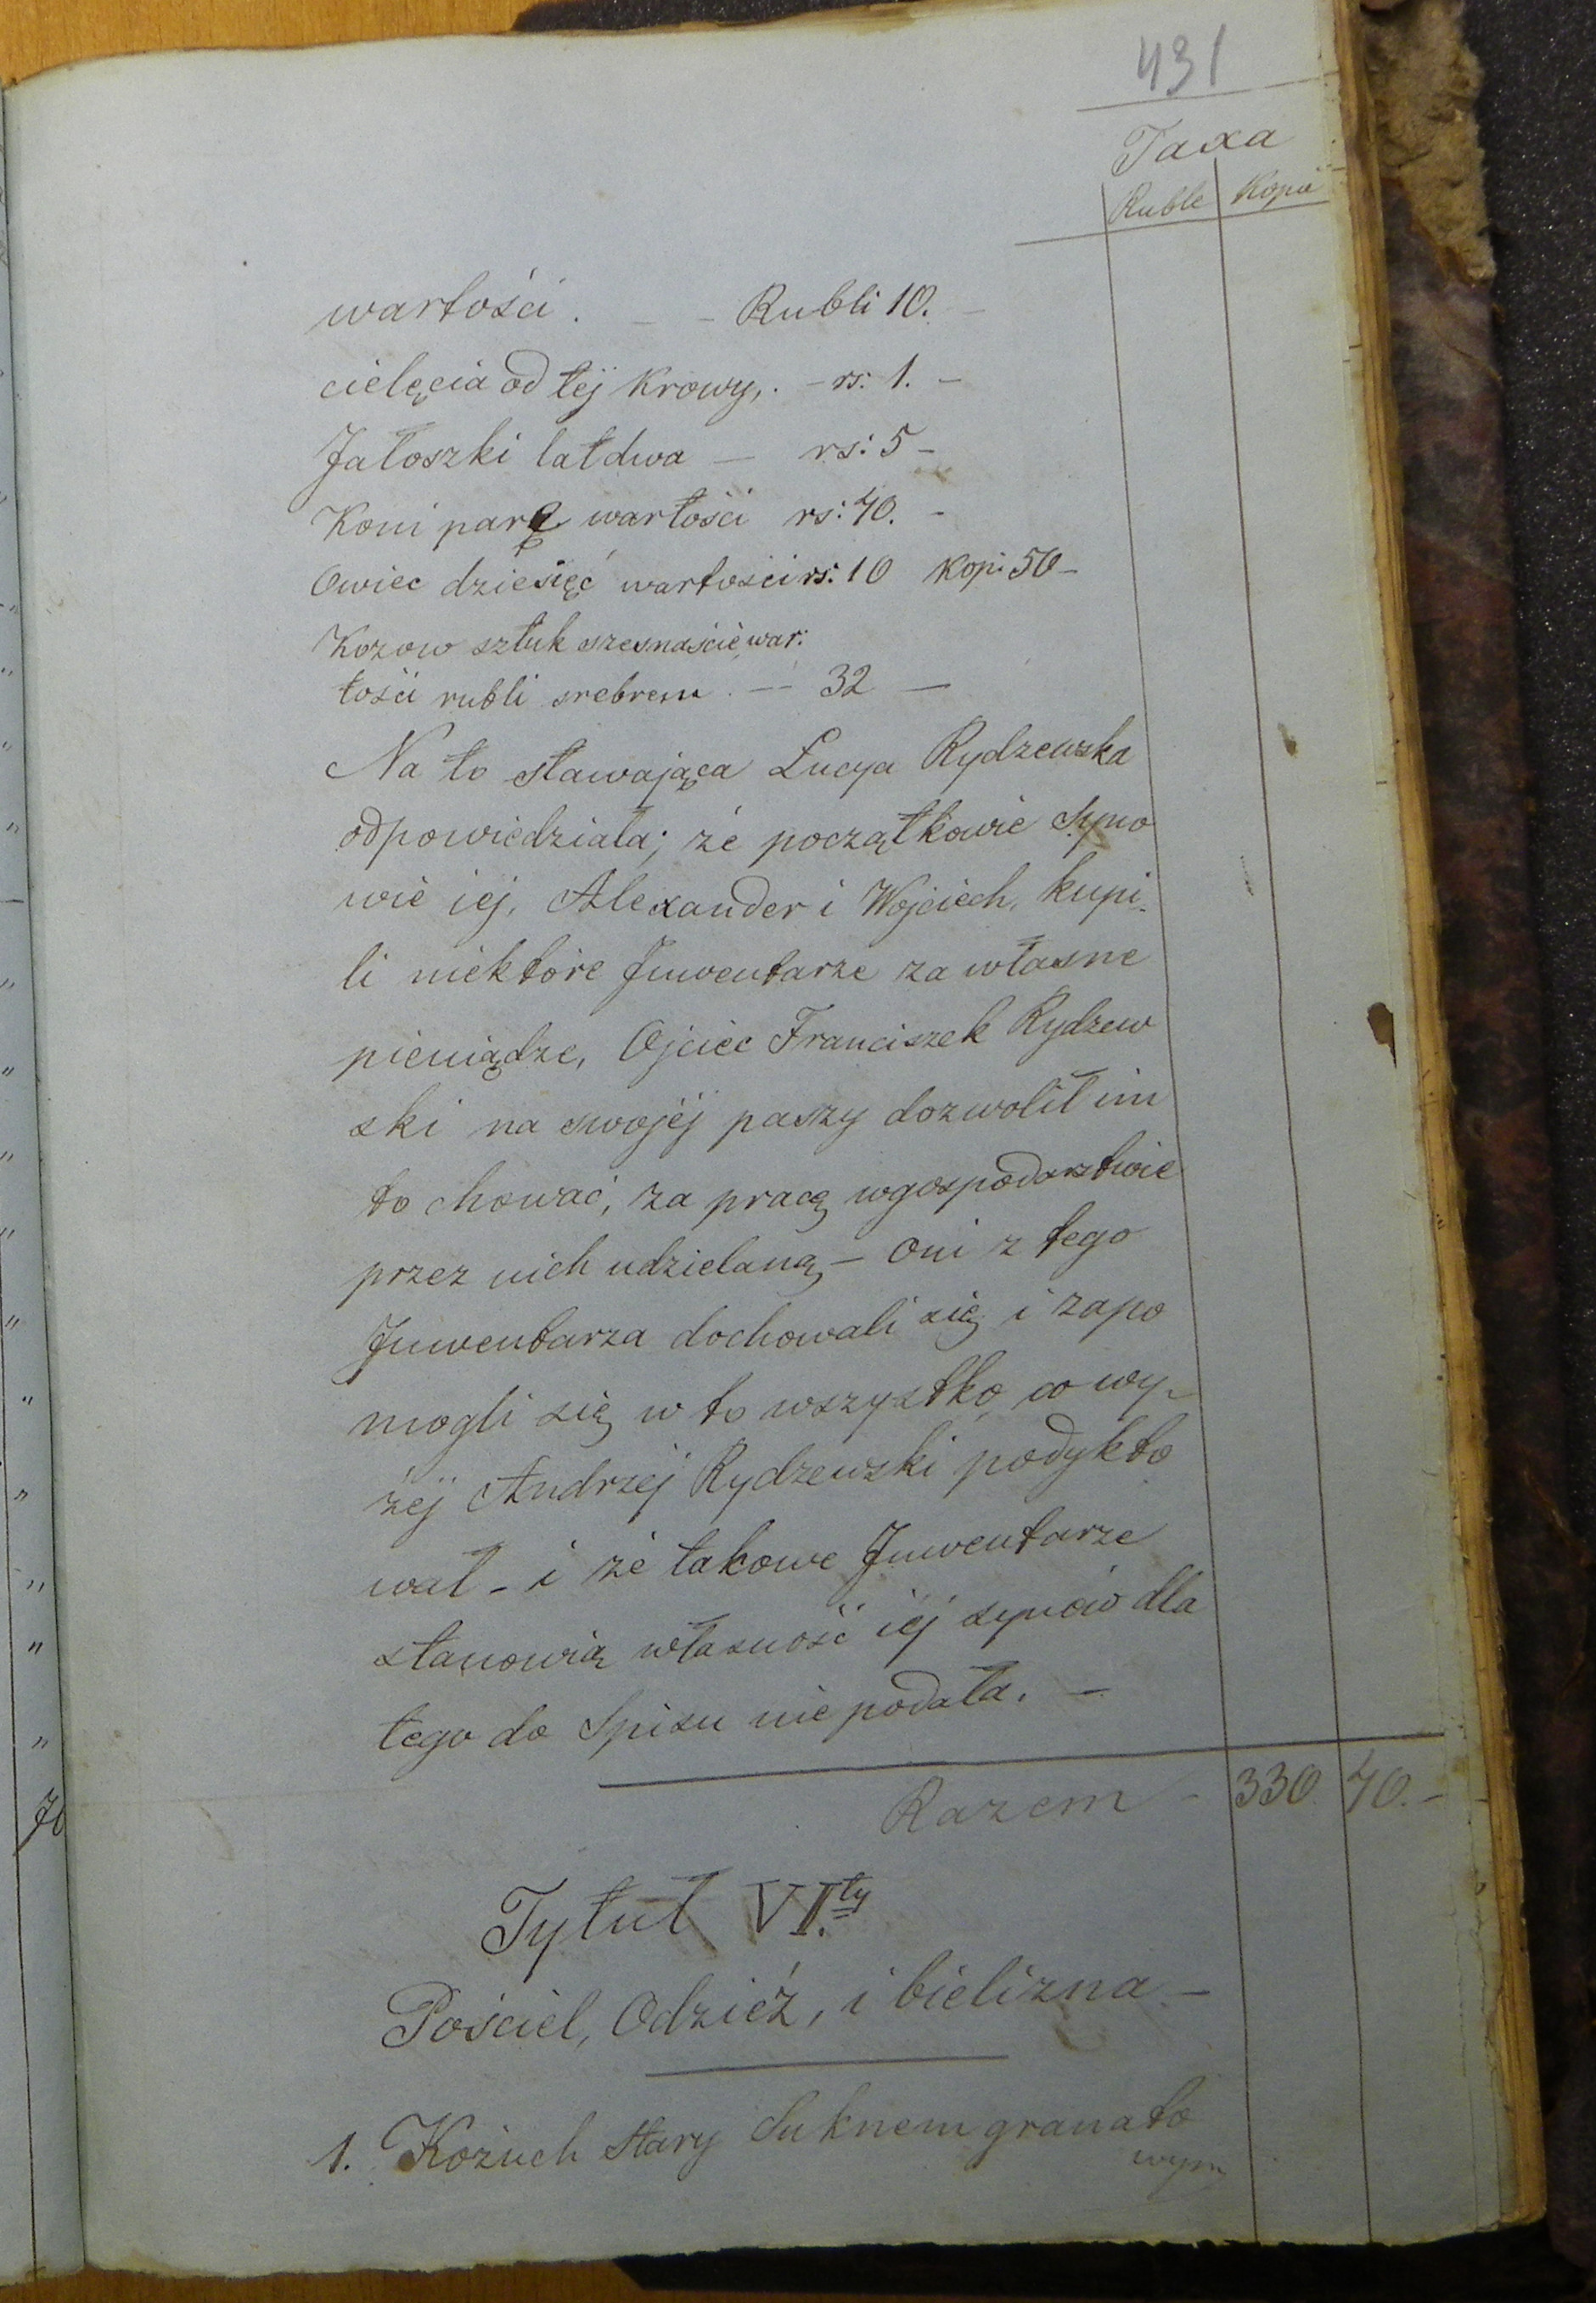 431
Taxa
Ruble Kopie
wartości. — - Rubli 10. -
cielęcia od tej Krowy, . - rs: 1. -
Jałoszki lat dwa — rs: 5 -
Koni parę wartości rs: 40. -
Owiec dziesięć wartości rs: 10 Kop: 50 -
Kozow sztuk szesnaście war:
tości rubli srebrem . — 32 —
Na to stawająca Łucya Rydzewska
odpowiedziała; że początkowie Syno
wie iej, Alexander i Wojciech, kupi-
li niektóre Inwentarze za własne
pieniądze, Ojciec Franciszek Rydzew
ski na swojéj paszy dozwolił im
to chować, za pracę w gospodarstwie
przez nich udzielaną - Oni z tego
Inwentarza dochowali się i zapo
mogli się w to wszystko, co wy-
żéj Andrzej Rydzewski podykto
wał - i że takowe Inwentarze
stanowią własność iéj synów dla
tego do Spisu nie podała. —
Razem - 330 40. -
Tytuł VI.ty
Pościel, Odzież, i bielizna -
1. Kożuch stary Suknem granato
wym
70